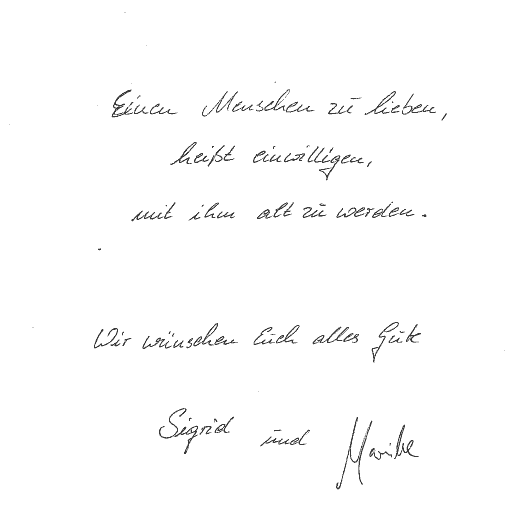 Einen Menschen zu lieben,
heißt einwilligen,
mit ihm alt zu werden.
Wir wünschen Euch alles Gute
Sigrid und